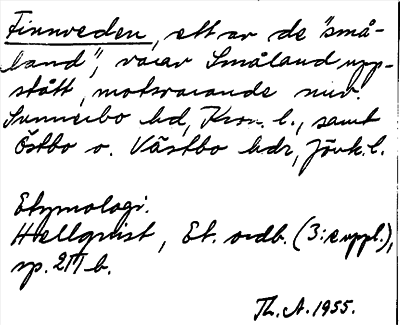 Finnveden, ett av de "små-
land", varav Småland upp-
stått, motsvarande nuv.
Sunnerbo hd, Kron. l., samt
Östbo o. Västbo hdr, Jönk. l.
Etymologi.
Hellquist, Et. ordb. (3:e uppl.),
sp. 211 b.
Th. A. 1955.